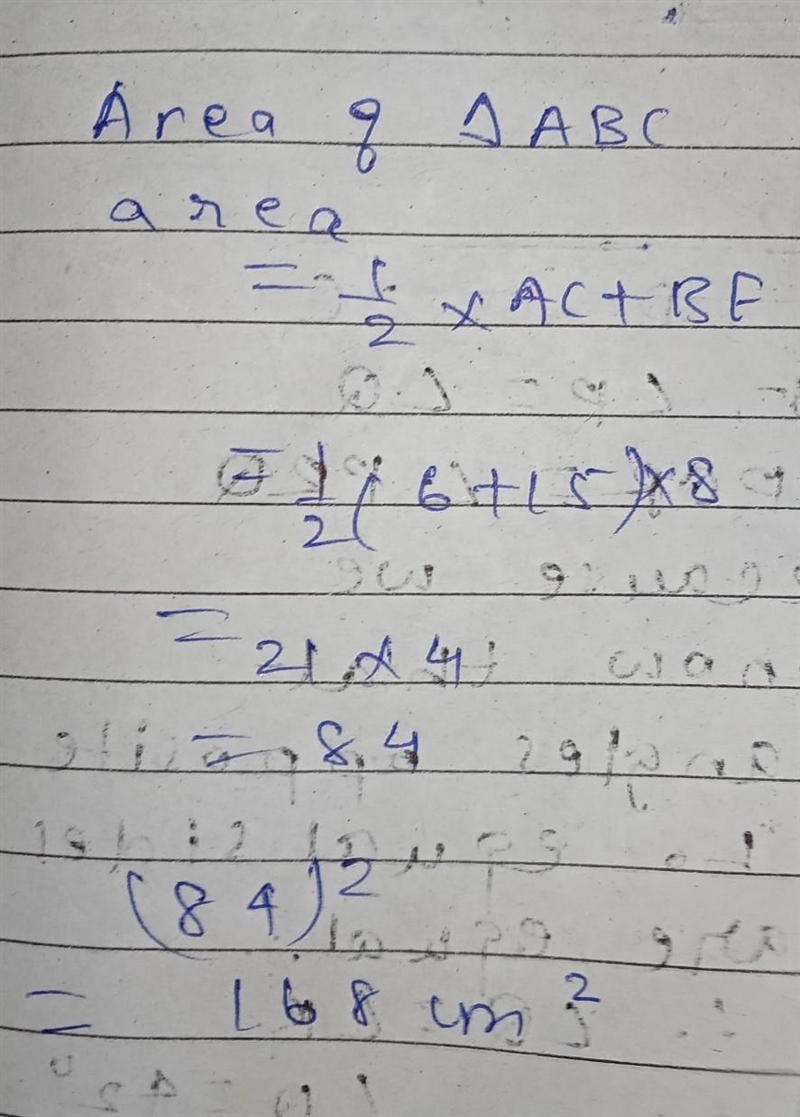 Area of △ABC
area
= 1/2 × AC + BE
= 1/2 (6 + 15) × 8
= 21 × 4
= 84
(84)²
= 168 cm²